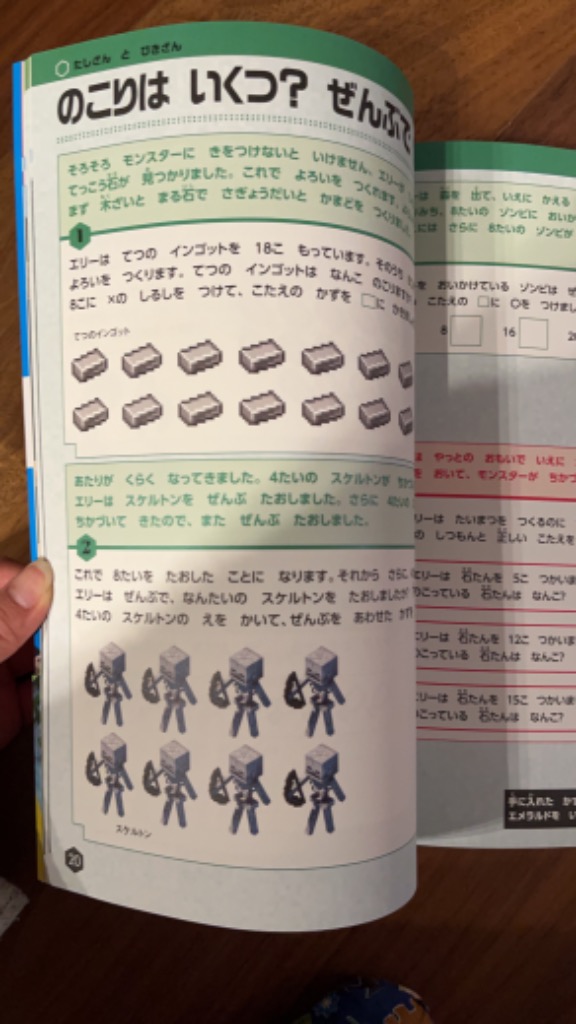 たしざん と ひきざん
のこりは いくつ? ぜんぶで
そろそろ モンスターに きをつけないと いけません。エリーが
てっこう石が 見つかりました。これで よろいを つくれます。
まず 木ざいと まる石で さぎょうだいと かまどを つくりました
1
エリーは てつの インゴットを 18こ もっています。そのうち
よろいを つくります。てつの インゴットは なんこ のこりますか
8こに ×の しるしを つけて、こたえの かずを □に かき
てつのインゴット
あたりが くらく なってきました。4たいの スケルトンが ちか
エリーは スケルトンを ぜんぶ たおしました。さらに 4たいの
ちかづいて きたので、また ぜんぶ たおしました。
2
これで 8たいを たおした ことに なります。それから さらに
エリーは ぜんぶで、なんたいの スケルトンを たおしましたか
4たいの スケルトンの えを かいて、ぜんぶを あわせた かず
スケルトン
20
は 森を 出て、いえに かえる
みち、8たいの ゾンビに おいか
には さらに 8たいの ゾンビが
を おいかけている ゾンビは ぜ
こたえの □に ○を つけまし
8 16 20
は やっとの おもいで いえに
を おいて、モンスターが ちかづ
リーは たいまつを つくるのに
の しつもんと 正しい こたえを
エリーは 石たんを 5こ つかいま
のこっている 石たんは なんこ?
エリーは 石たんを 12こ つかいま
のこっている 石たんは なんこ?
エリーは 石たんを 15こ つかいま
のこっている 石たんは なんこ?
手に入れた かず
エメラルドを い